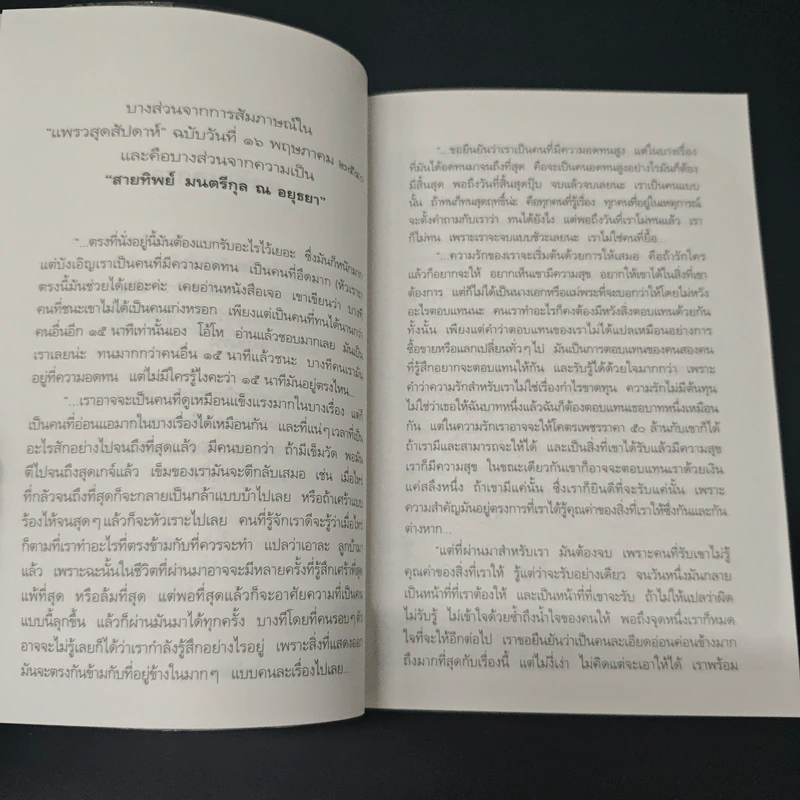 บางส่วนจากการสัมภาษณ์ใน
"แพรวสุดสัปดาห์" ฉบับวันที่ ๑๖ พฤษภาคม
และคือบางส่วนจากความเป็น
"สายทิพย์ มนตรีกุล ณ อยุธยา"
"...ตรงที่นั่งอยู่นี้มันต้องแบกรับอะไรไว้เยอะ ซึ่งมันก็หนักมาก
แต่บังเอิญเราเป็นคนที่มีความอดทน เป็นคนที่อึดมาก (หัวเราะ)
ตรงนี้มันช่วยได้เยอะค่ะ เคยอ่านหนังสือเจอ เขาเขียนว่า บางที
คนที่ชนะเขาไม่ได้เป็นคนเก่งหรอก เพียงแต่เป็นคนที่ทนได้นานกว่า
คนอื่นอีก ๑๕ นาทีเท่านั้นเอง โอ้โห อ่านแล้วชอบมากเลย มันเป็น
เราเลยน่ะ ทนมากกว่าคนอื่น ๑๕ นาทีแล้วชนะ บางทีคนเรามัน
อยู่ที่ความอดทน แต่ไม่มีใครรู้ไงคะว่า ๑๕ นาทีมันอยู่ตรงไหน...
"...เราอาจจะเป็นคนที่ดูเหมือนแข็งแรงมากในบางเรื่อง แต่ก็
เป็นคนที่อ่อนแอมากในบางเรื่องได้เหมือนกัน และที่แน่ๆ เวลาที่เป็น
อะไรสักอย่างไปจนถึงที่สุดแล้ว มีคนบอกว่า ถ้ามีเข็มวัด พอมัน
ตีไปจนถึงสุดเกจ์แล้ว เข็มของเรามันจะตีกลับเสมอ เช่น เมื่อไหร่
ที่กลัวจนถึงที่สุดก็จะกลายเป็นกล้าแบบบ้าไปเลย หรือถ้าเศร้าแบบ
ร้องไห้จนสุดๆ แล้วก็จะหัวเราะไปเลย คนที่รู้จักเราดีจะรู้ว่าเมื่อไหร่
ก็ตามที่เราทำอะไรที่ตรงข้ามกับที่ควรจะทำ แปลว่าเอาละ ลูกบ้ามา
แล้ว เพราะฉะนั้นในชีวิตที่ผ่านมาอาจจะมีหลายครั้งที่รู้สึกเศร้าที่สุด
แพ้ที่สุด หรือล้มที่สุด แต่พอที่สุดแล้วก็จะอาศัยความที่เป็นคน
แบบนี้ลุกขึ้น แล้วก็ผ่านมันมาได้ทุกครั้ง บางทีโดยที่คนรอบๆ ตัว
อาจจะไม่รู้เลยก็ได้ว่าเรากำลังรู้สึกอย่างไรอยู่ เพราะสิ่งที่แสดงออก
มันจะตรงกันข้ามกับที่อยู่ข้างในมากๆ แบบคนละเรื่องไปเลย...
"...ขอยืนยันว่าเราเป็นคนที่มีความอดทนสูง แต่ในบางเรื่อง
ที่มันได้อดทนมาจนถึงที่สุด คือจะเป็นคนอดทนสูงอย่างไรมันก็ต้อง
มีสิ้นสุด พอถึงวันที่สิ้นสุดปุ๊บ จบแล้วจบเลยนะ เราเป็นคนแบบ
นั้น ถ้าทนก็ทนสุดฤทธิ์น่ะ คือทุกคนที่รู้เรื่อง ทุกคนที่อยู่ในเหตุการณ์
จะตั้งคำถามกับเราว่า ทนได้ยังไง แต่พอถึงวันที่เราไม่ทนแล้ว เรา
ก็ไม่ทน เพราะเราจะจบแบบชัวะเลยนะ เราไม่ใช่คนที่ยื้อ...
"...ความรักของเราจะเริ่มต้นด้วยการให้เสมอ คือถ้ารักใคร
แล้วก็อยากจะให้ อยากเห็นเขามีความสุข อยากให้เขาได้ในสิ่งที่เขา
ต้องการ แต่ก็ไม่ได้เป็นนางเอกหรือแม่พระที่จะบอกว่าให้โดยไม่หวัง
อะไรตอบแทนนะ คนเราทำอะไรก็คงต้องมีหวังสิ่งตอบแทนด้วยกัน
ทั้งนั้น เพียงแต่คำว่าตอบแทนของเราไม่ได้แปลเหมือนอย่างการ
ซื้อขายหรือแลกเปลี่ยนทั่วๆ ไป มันเป็นการตอบแทนของคนสองคน
ที่รู้สึกอยากจะตอบแทนให้กัน และรับรู้ได้ด้วยใจมากกว่า เพราะ
คำว่าความรักสำหรับเราไม่ใช่เรื่องกำไรขาดทุน ความรักไม่มีต้นทุน
ไม่ใช่ว่าเธอให้ฉันบาทหนึ่งแล้วฉันก็ต้องตอบแทนเธอบาทหนึ่งเหมือน
กัน แต่ในความรักเราอาจจะให้โคตรเพชรราคา ๕๐ ล้านกับเขาก็ได้
ถ้าเรามีและสามารถจะให้ได้ และเป็นสิ่งที่เขาได้รับแล้วมีความสุข
เราก็มีความสุข ในขณะเดียวกันเขาก็อาจจะตอบแทนเราด้วยเงิน
แค่สลึงหนึ่ง ถ้าเขามีแค่นั้น ซึ่งเราก็ยินดีที่จะรับแค่นั้น เพราะ
ความสำคัญมันอยู่ตรงการที่เราได้รู้คุณค่าของสิ่งที่เราให้ซึ่งกันและกัน
ต่างหาก...
"แต่ที่ผ่านมาสำหรับเรา มันต้องจบ เพราะคนที่รับเขาไม่รู้
คุณค่าของสิ่งที่เราให้ รู้แต่ว่าจะรับอย่างเดียว จนวันหนึ่งมันกลาย
เป็นหน้าที่ที่เราต้องให้ และเป็นหน้าที่ที่เขาจะรับ ถ้าไม่ให้แปลว่าผิด
ไม่รับรู้ ไม่เข้าใจด้วยซ้ำถึงน้ำใจของคนให้ พอถึงจุดหนึ่งเราก็หมด
ใจที่จะให้อีกต่อไป เราขอยืนยันว่าเป็นคนละเอียดอ่อนค่อนข้างมาก
ถึงมากที่สุดกับเรื่องนี้ แต่ไม่งี่เง่า ไม่คิดแต่จะเอาให้ได้ เราพร้อม